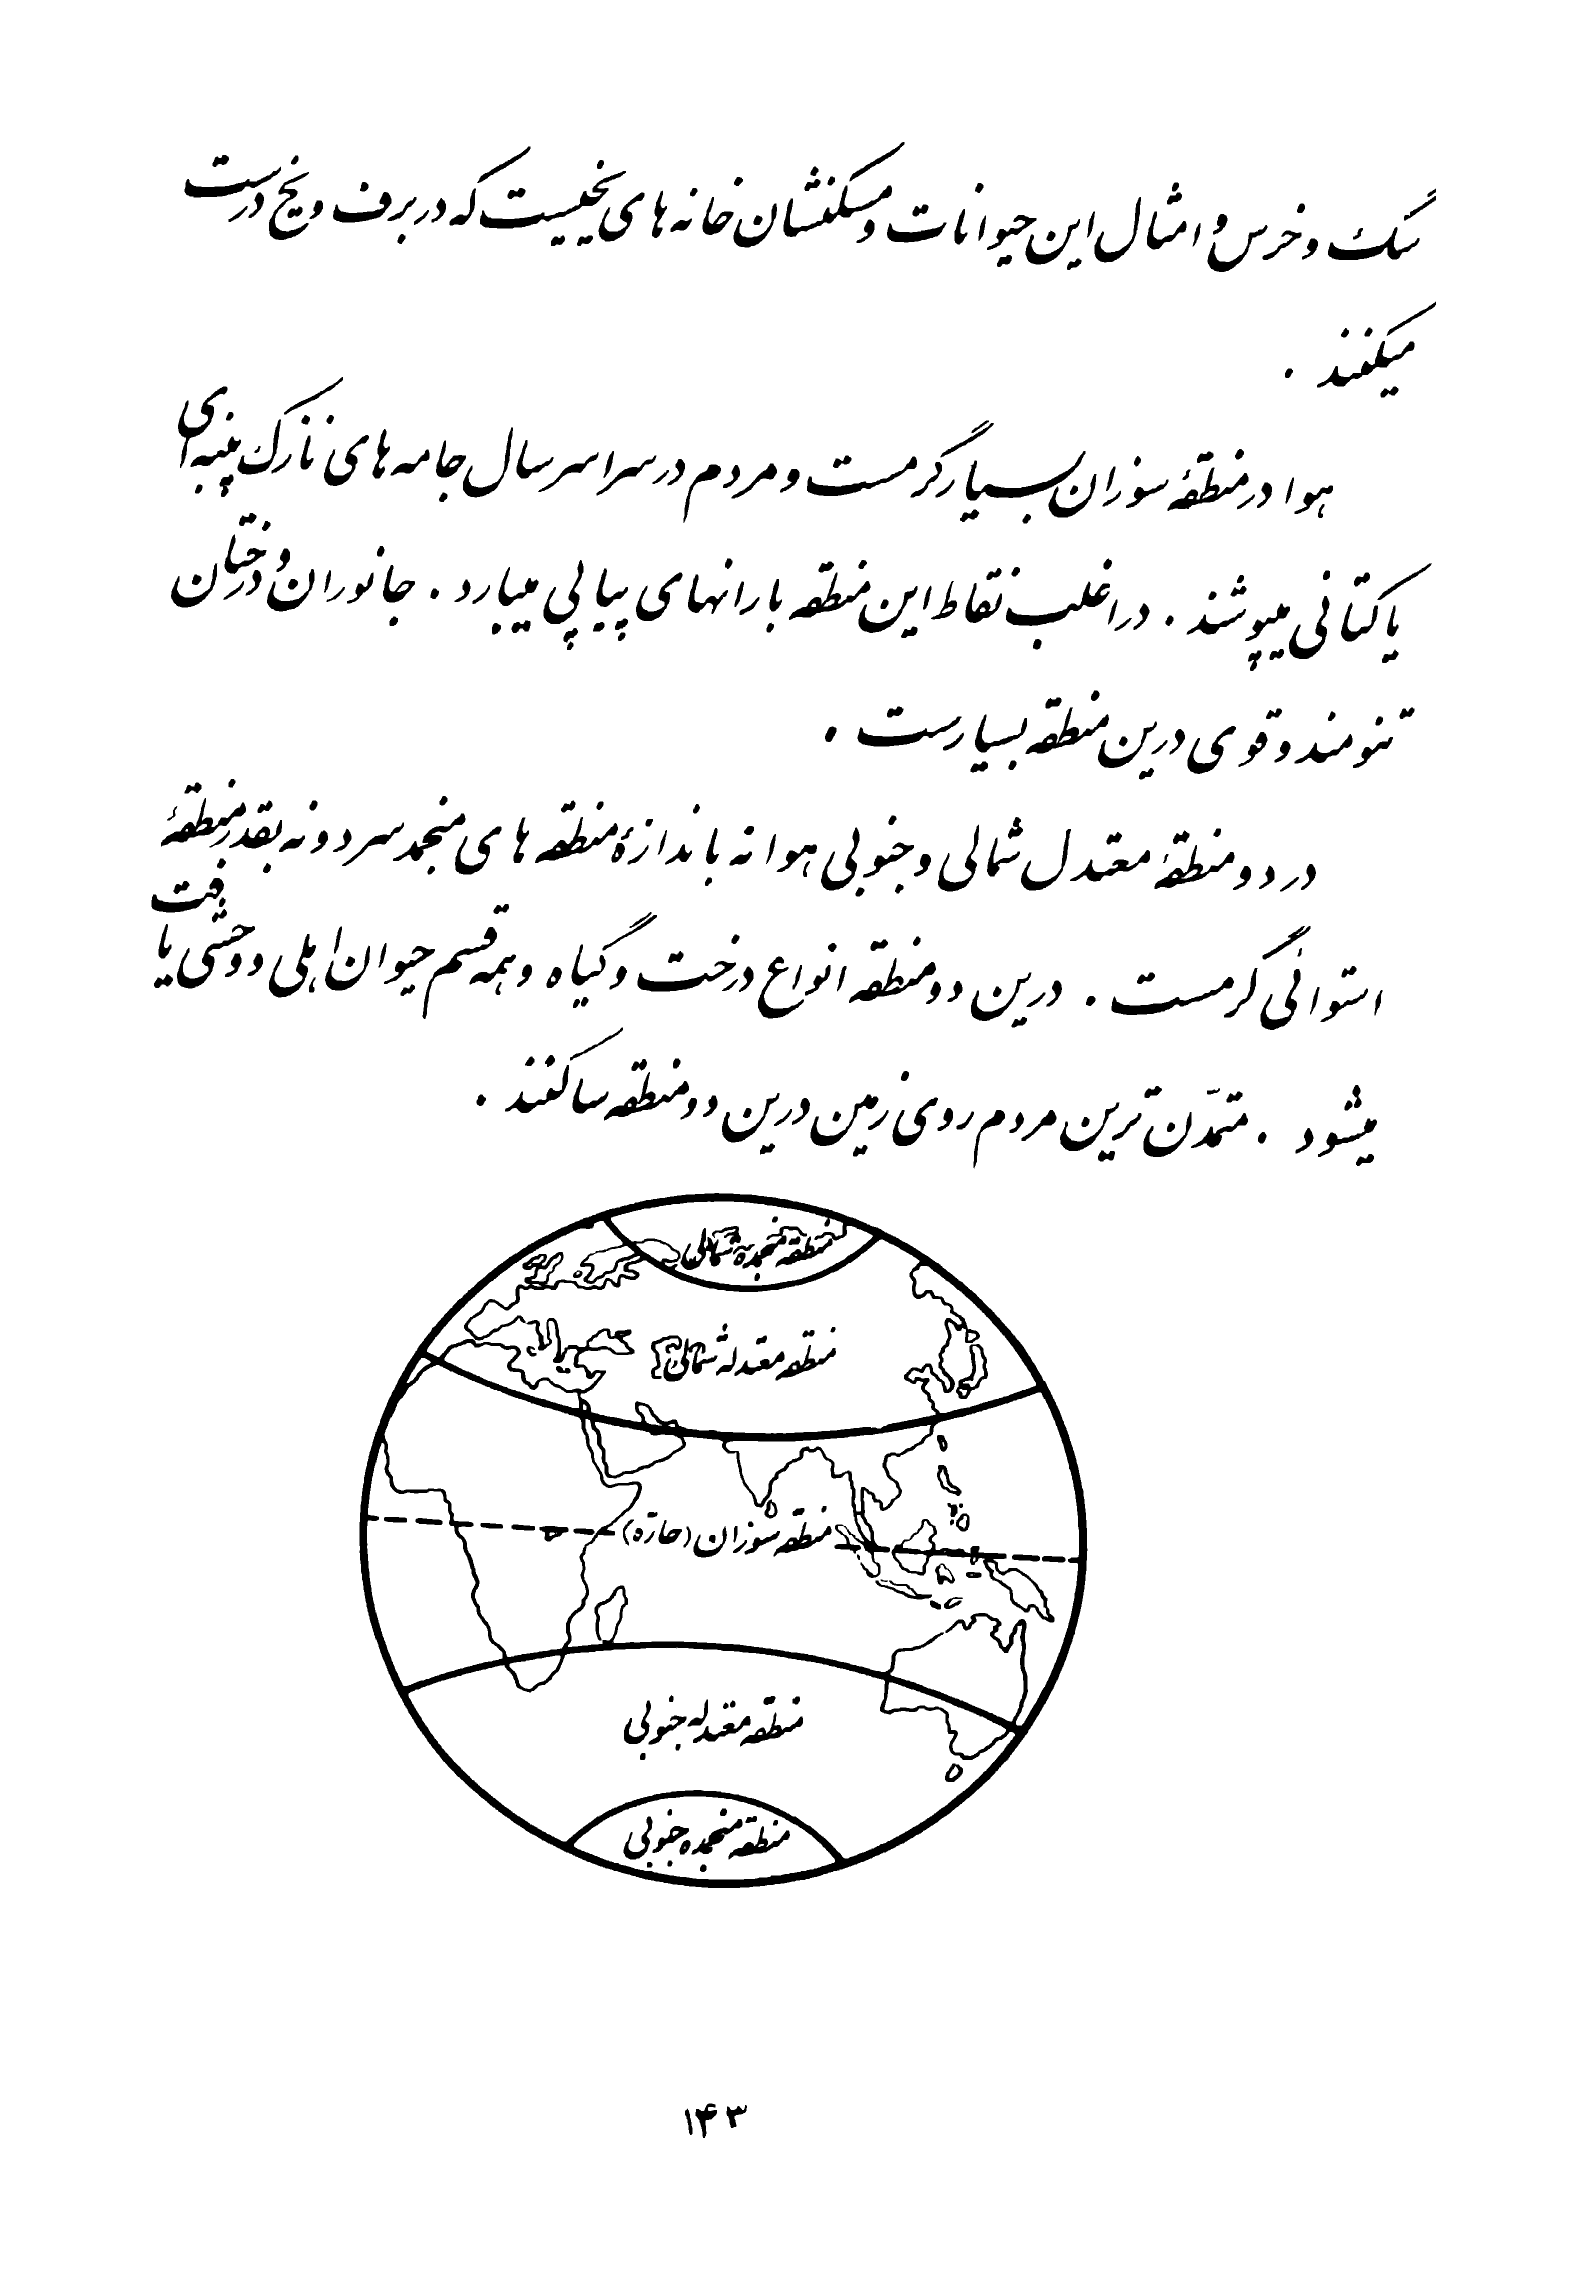 سگ و خرس و امثال این حیوانات و مسکنشان خانه های یخیست که در برف و یخ درست
میکنند .
هوا در منطقهٔ سوزان بسیار گرمست و مردم در سراسر سال جامه های نازک پنبه ای
یا کتانی میپوشند . در اغلب نقاط این منطقه بارانهای پیاپی میبارد . جانوران و درختان
تنومند و قوی درین منطقه بسیارست .
در دو منطقهٔ معتدل شمالی و جنوبی هوا نه باندازهٔ منطقه های منجمد سرد و نه بقدر منطقهٔ
استوائی گرمست . درین دو منطقه انواع درخت و گیاه و همه قسم حیوان اهلی و وحشی یافت
میشود . متمدّن ترین مردم روی زمین درین دو منطقه ساکنند .
منطقه منجمدهٔ شمالی
منطقه معتدله شمالی
منطقه سوزان (حارّه)
منطقه معتدله جنوبی
منطقه منجمده جنوبی
۱۴۳